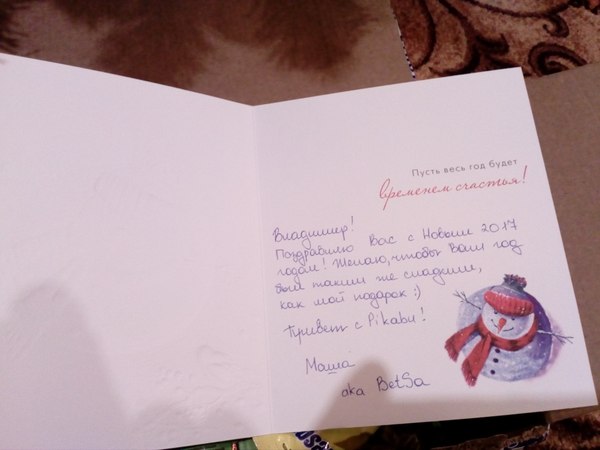 Пусть весь год будет
временем счастья!
Владимир!
Поздравляю Вас с Новым 2017
годом! Желаю, чтобы Ваш год
был таким же сладким,
как мой подарок :)
Привет с Pikabu!
Маша
aka BetSa